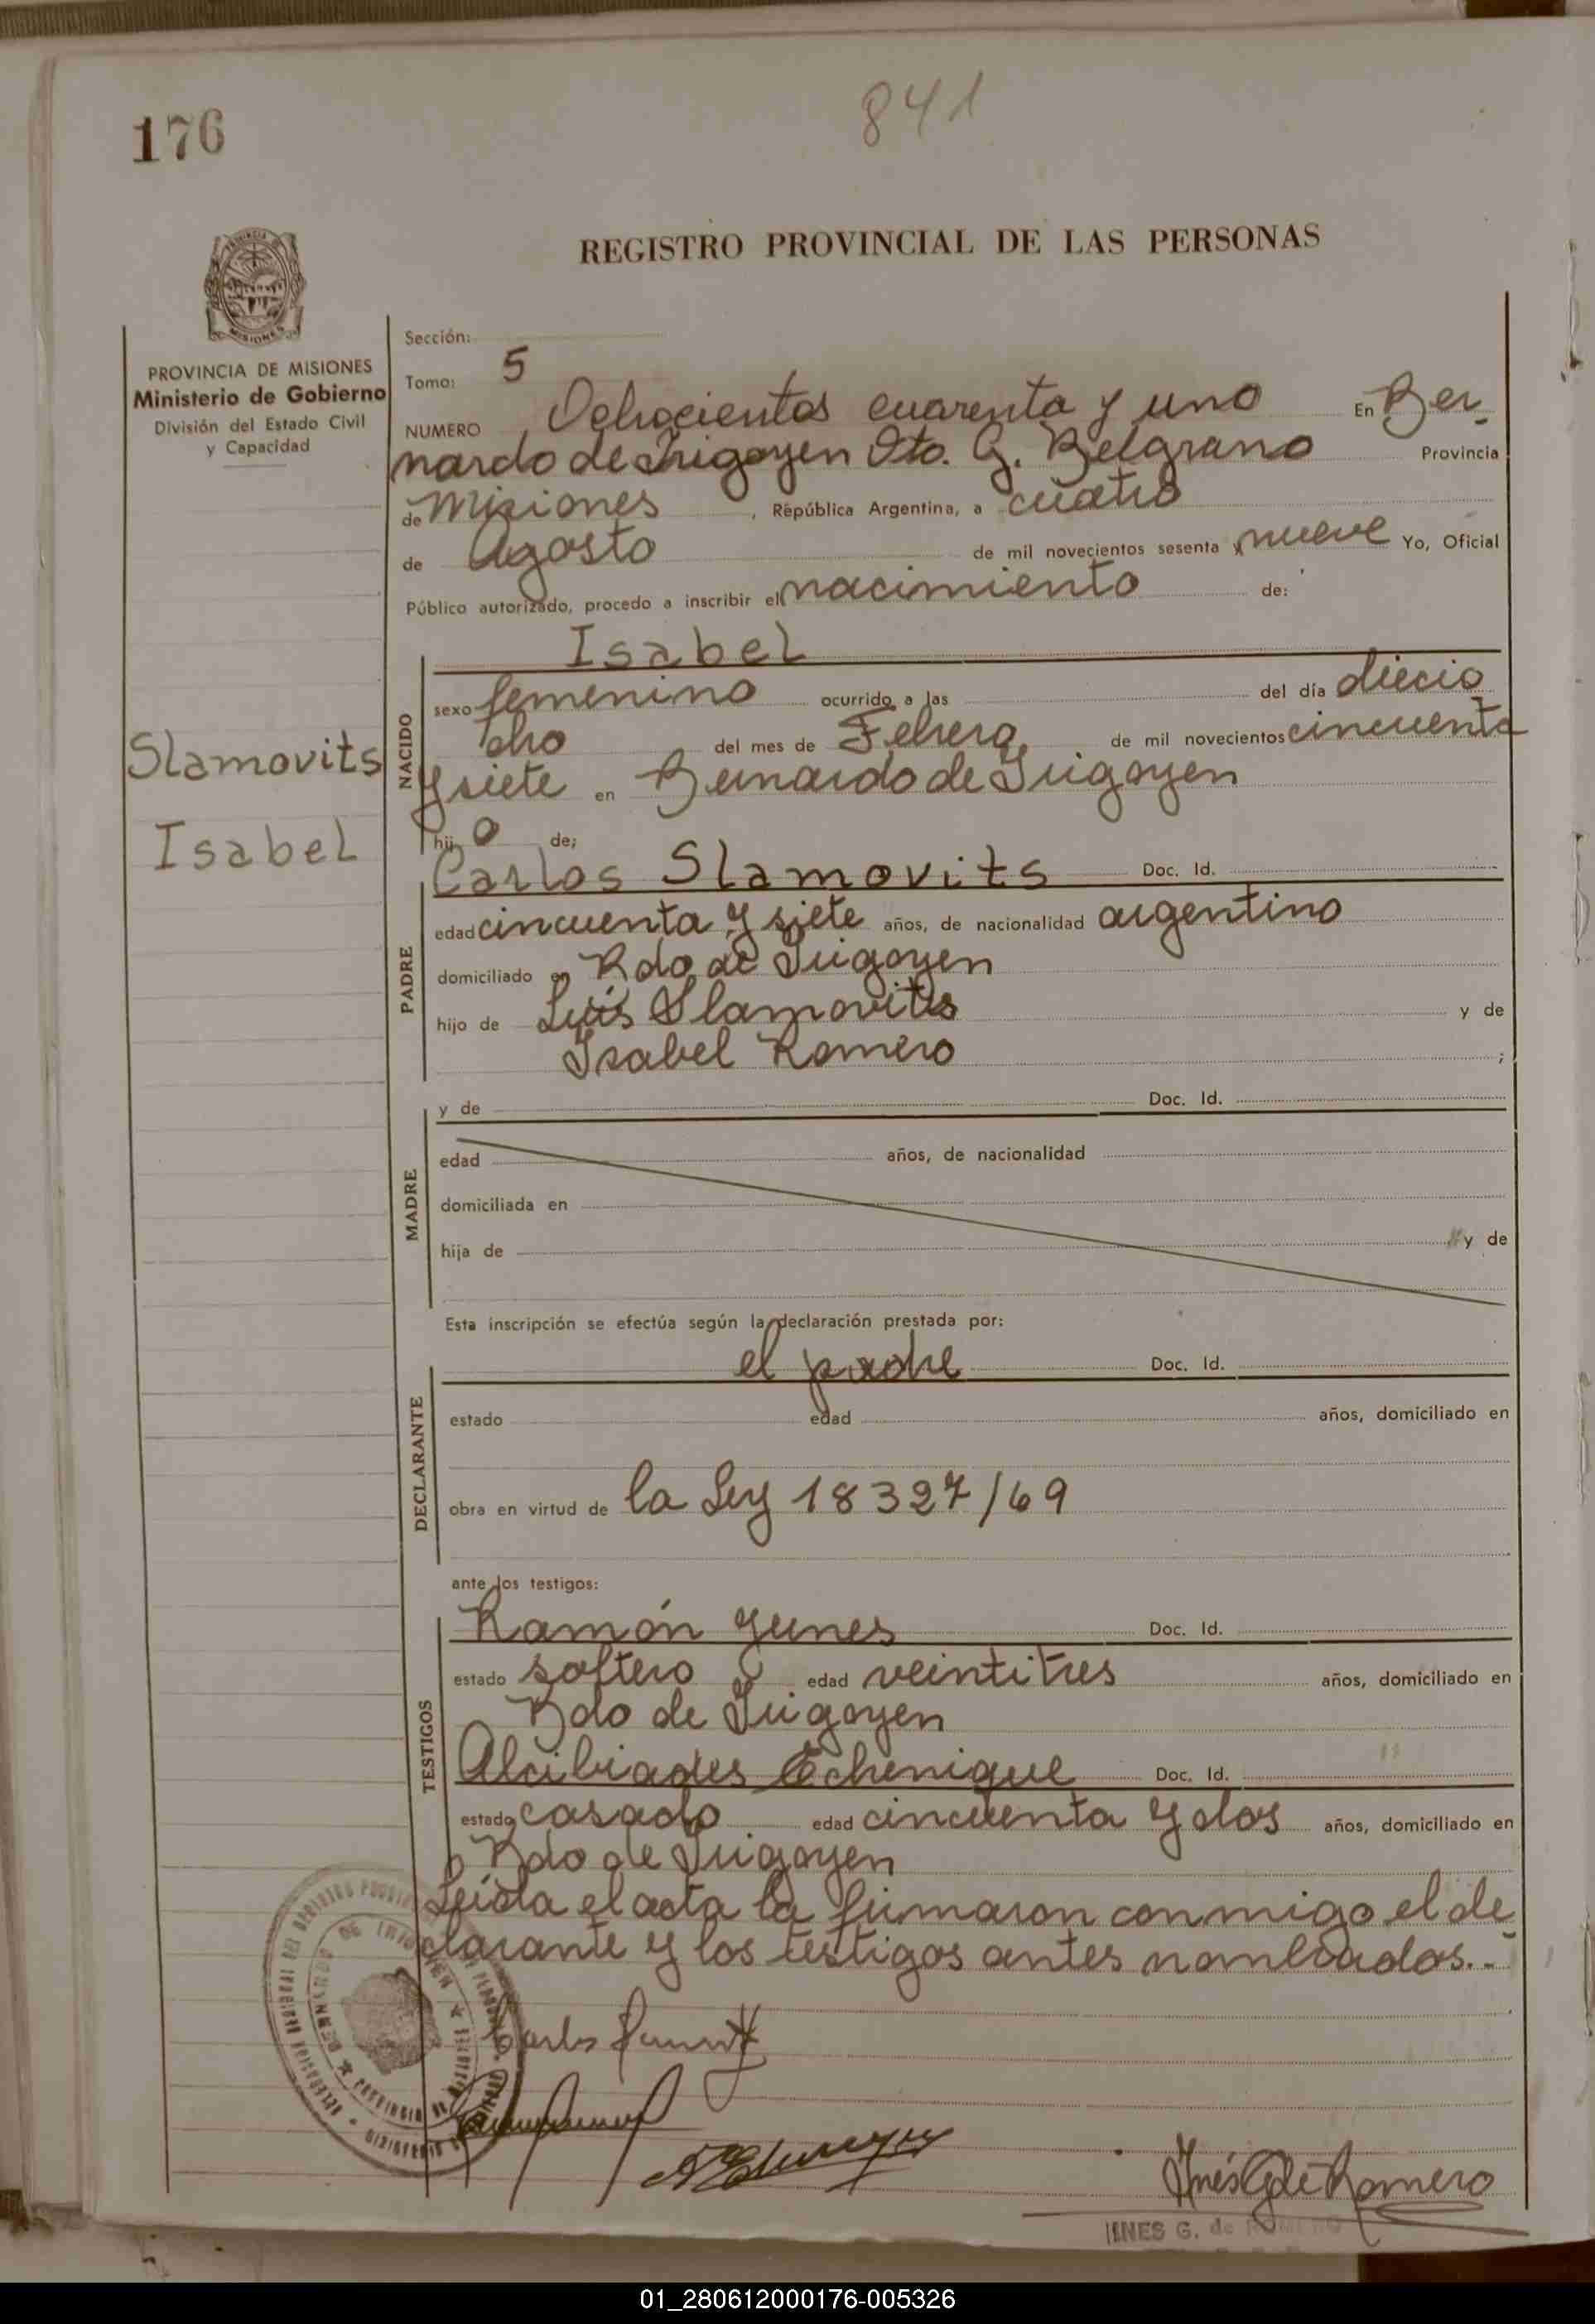 176
841
REGISTRO PROVINCIAL DE LAS PERSONAS
PROVINCIA DE MISIONES
Ministerio de Gobierno
División del Estado Civil
y Capacidad
Slamovits
Isabel
Sección:
Tomo: 5
NUMERO Ochocientos cuarenta y uno En Ber
nardo de Irigoyen Dto. G. Belgrano Provincia
de Misiones, República Argentina, a cuatro
de Agosto de mil novecientos sesenta y nueve Yo, Oficial
Público autorizado, procedo a inscribir el nacimiento de:
NACIDO
Isabel
sexo femenino ocurrido a las del día diecio
cho del mes de Febrero de mil novecientos cincuenta
y siete en Bernardo de Irigoyen
hij o de;
PADRE
Carlos Slamovits Doc. Id.
edad cincuenta y siete años, de nacionalidad argentino
domiciliado en Bdo de Irigoyen
hijo de Luis Slamovits y de
Isabel Romero ;
MADRE
y de Doc. Id.
edad años, de nacionalidad
domiciliada en
hija de y de
Esta inscripción se efectúa según la declaración prestada por:
DECLARANTE
el padre Doc. Id.
estado edad años, domiciliado en
obra en virtud de la Ley 18327/69
ante los testigos:
TESTIGOS
Ramón Yunes Doc. Id.
estado soltero edad veintitres años, domiciliado en
Bdo de Irigoyen
Alcibiades Echenique Doc. Id.
estado casado edad cincuenta y dos años, domiciliado en
Bdo de Irigoyen
Leida el acta la firmaron conmigo el de
clarante y los testigos antes nombrados.-
Inés G de Romero
INES G. de ROMERO
01_280612000176-005326